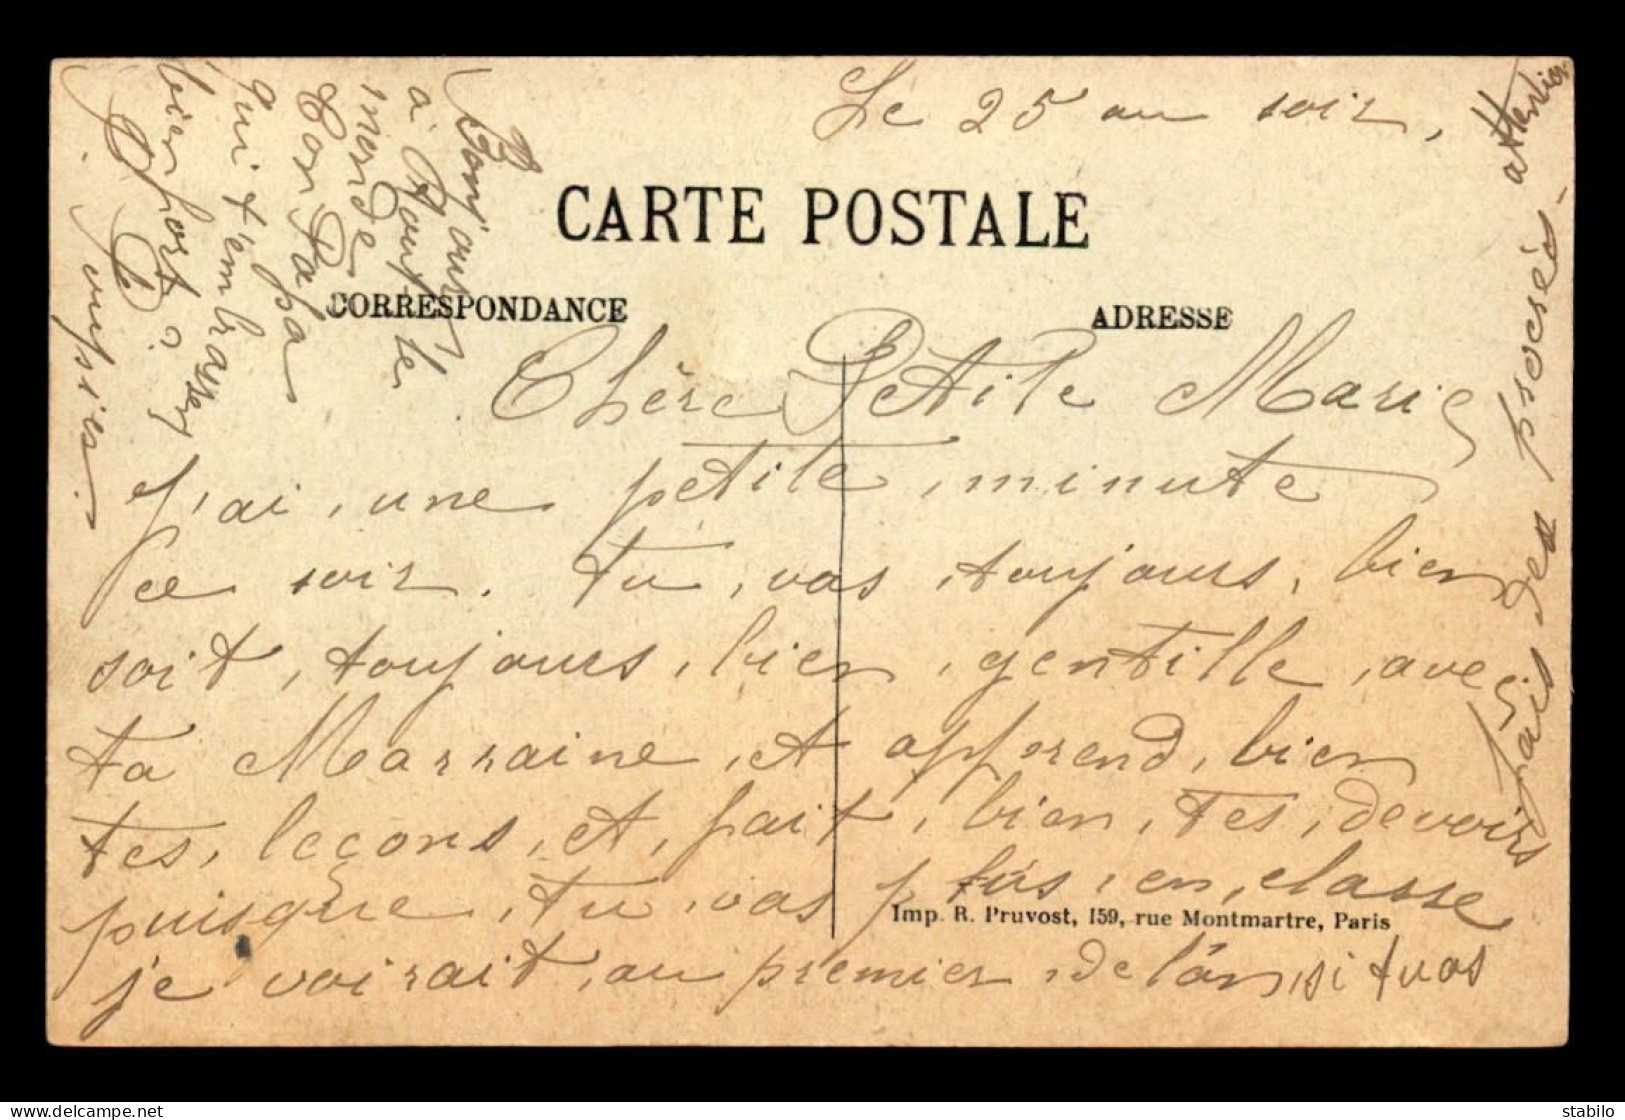 Le 25 au soir,
CARTE POSTALE
CORRESPONDANCE
ADRESSE
Chère Petite Marie
J'ai, une petite, minute
ce soir. Tu, vas, toujours, bien
soit, toujours, bien, gentille, avec
ta Marraine, et apprend, bien
tes, leçons, et, fait, bien, tes, devoirs
puisque, tu, vas, plus, en, classe
je voirait, au premier, de l'an, si tu as
fais des progrés attention
Bonjour
à tout le
monde
ton Pa
Pa qui t'embrasse
bien fort
Imp. R. Pruvost, 159, rue Montmartre, Paris
stabilo